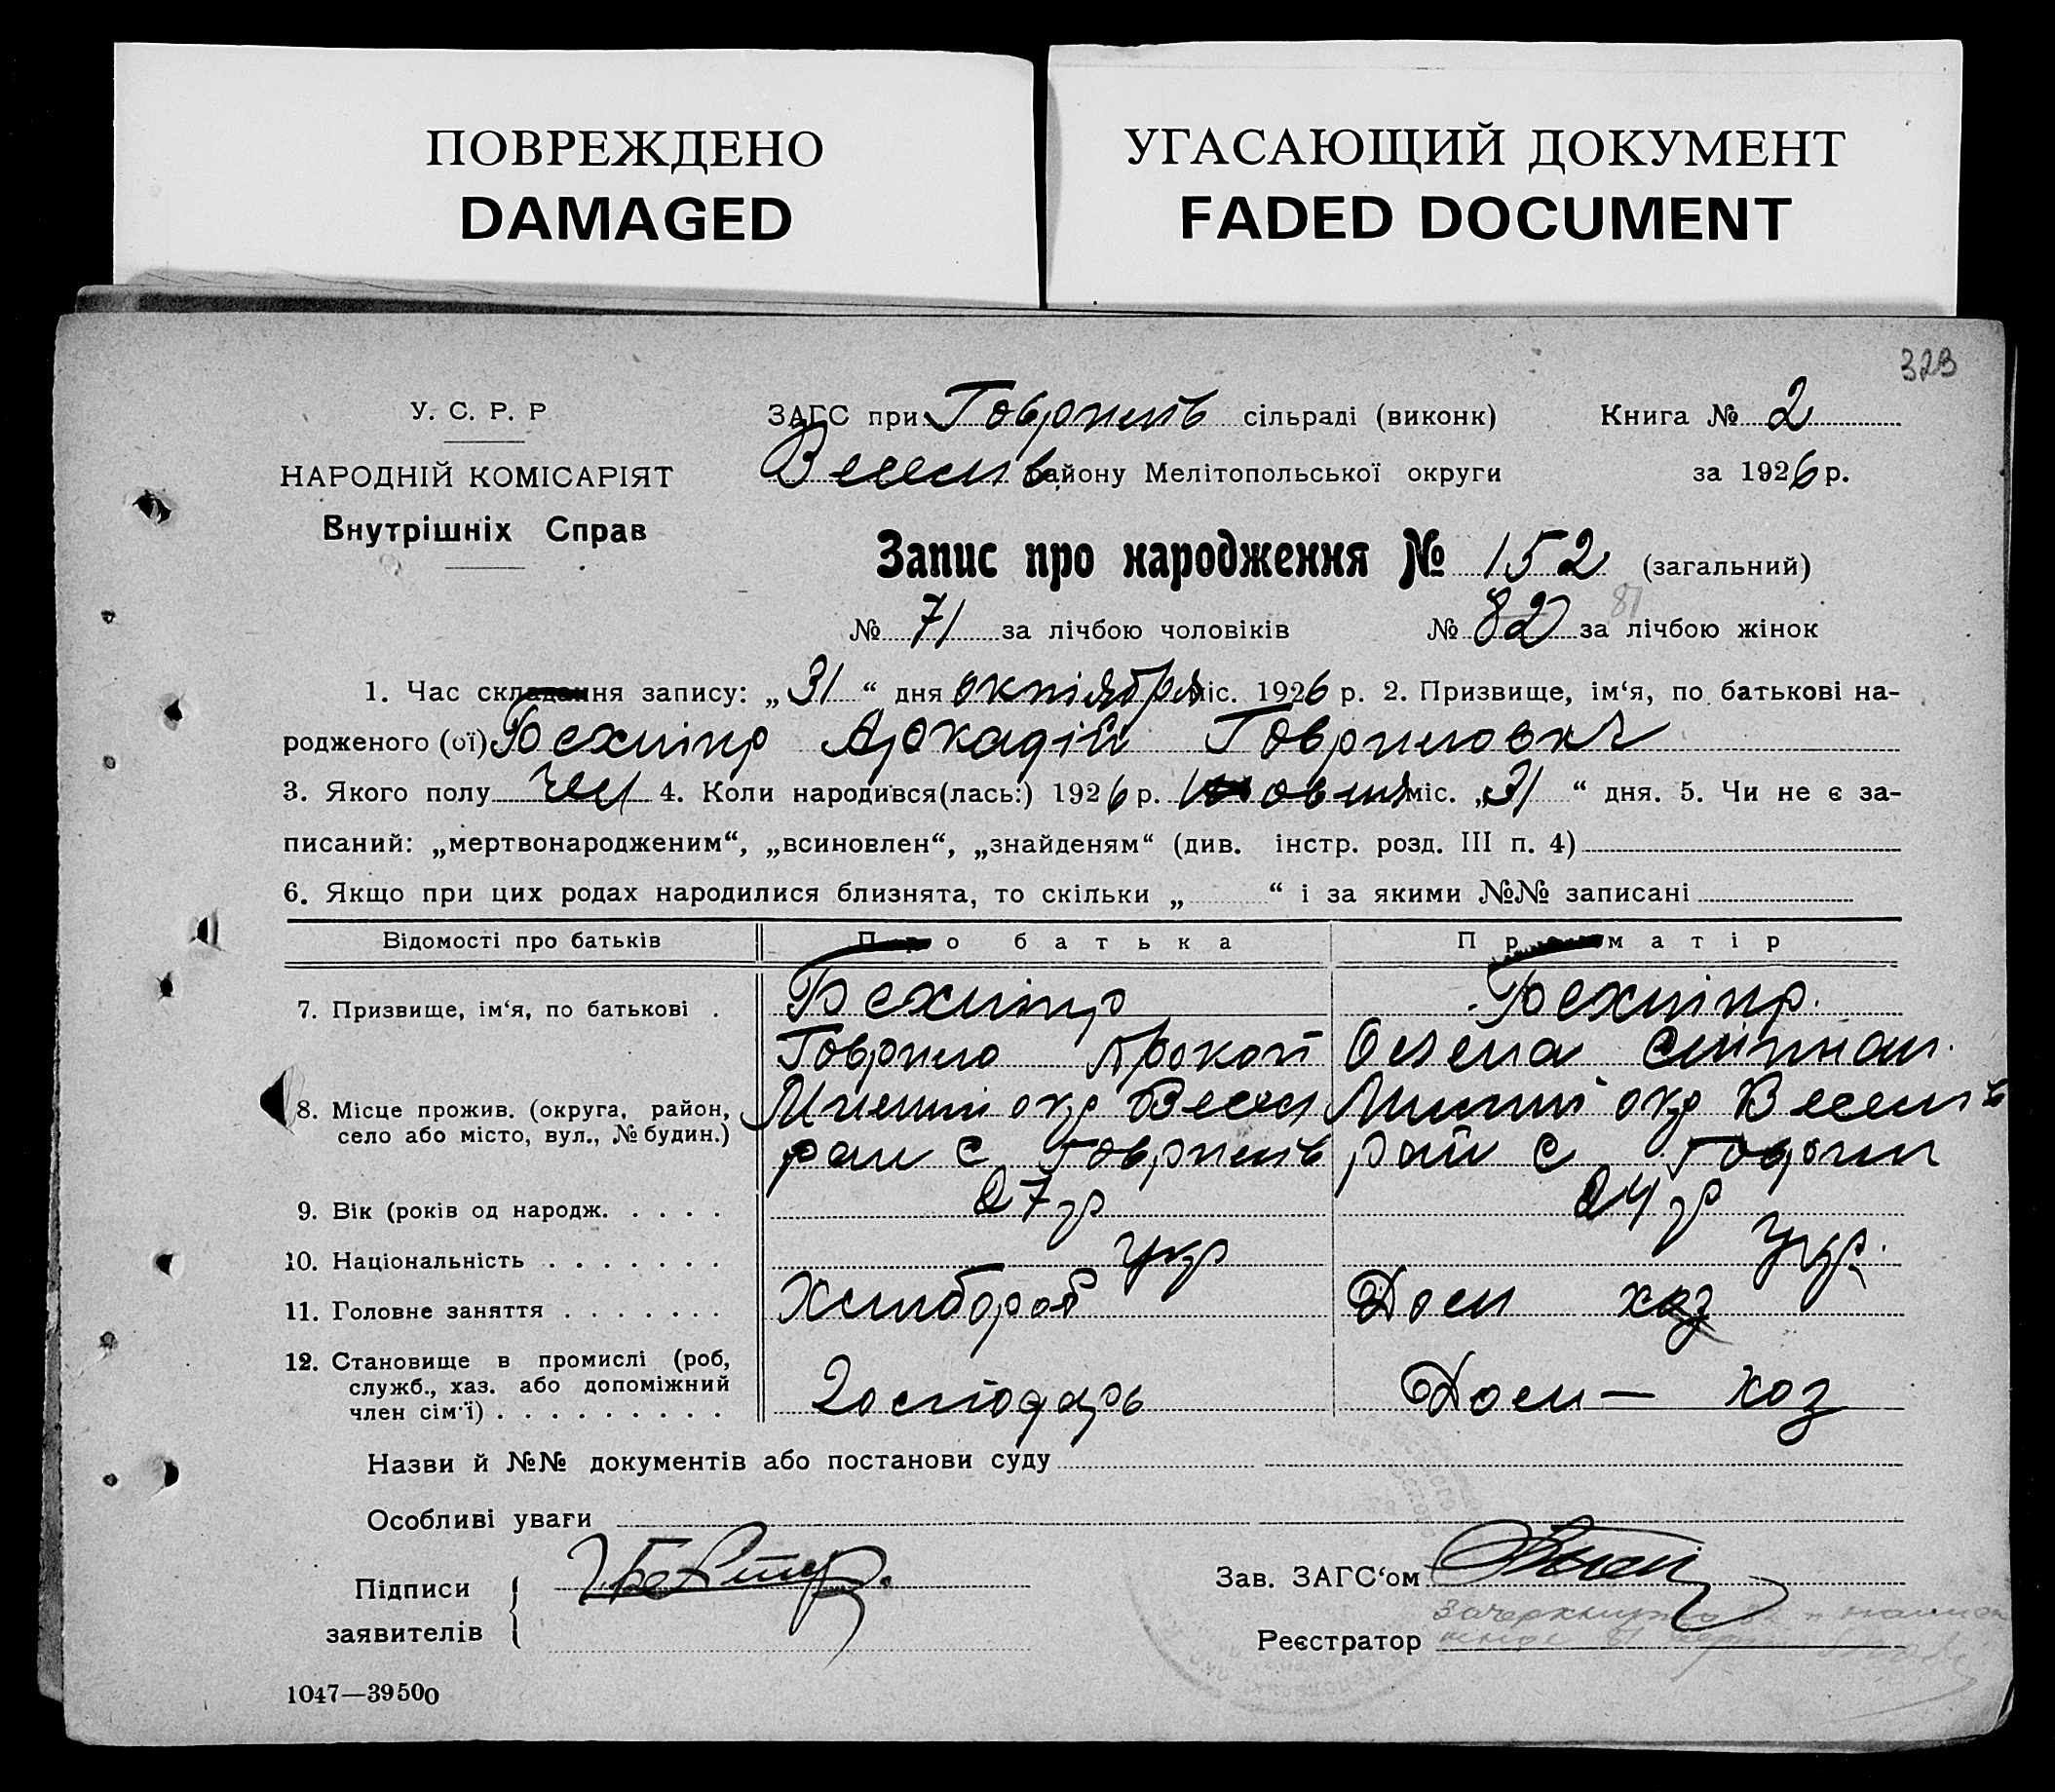 ПОВРЕЖДЕНО
DAMAGED
УГАСАЮЩИЙ ДОКУМЕНТ
FADED DOCUMENT
323
У. С. Р. Р
НАРОДНІЙ КОМІСАРІЯТ
Внутрішніх Справ
ЗАГС при Гаврилів сільраді (виконк) Книга № 2
Веселів району Мелітопольської округи за 1926 р.
Запис про народження № 152 (загальний)
№ 71 за лічбою чоловіків № 82 81 за лічбою жінок
1. Час складання запису: „31“ дня октября міс. 1926 р. 2. Призвище, ім‘я, по батькові на-
родженого (ої) Бехтір Аркадій Гаврилович
3. Якого полу чол 4. Коли народився(лась:) 1926 р. жовтня міс. „31“ дня. 5. Чи не є за-
писаний: „мертвонародженим“, „всиновлен“, „знайденям“ (див. інстр. розд. III п. 4)
6. Якщо при цих родах народилися близнята, то скільки „ “ і за якими №№ записані
Відомості про батьків Про батька Про матір
7. Призвище, ім‘я, по батькові . Бехтір Бехтір.
Гаврило Прокоп Олена
8. Місце прожив. (округа, район, окр Весел окр Веселів
село або місто, вул., № будин.) рай с Гаврилів рай с Гаврил
9. Вік (років од народж. . . . . 27 р 24 р
10. Національність . . . . . . . Укр Укр.
11. Головне заняття . . . . . . . Хлибороб Дом хоз
12. Становище в промислі (роб,
служб., хаз. або допоміжний
член сім‘ї) . . . . . . . . . Господарь Дом — хоз
Назви й №№ документів або постанови суду
Особливі уваги
Підписи
заявителів
Зав. ЗАГС‘ом
Реєстратор
1047—39500